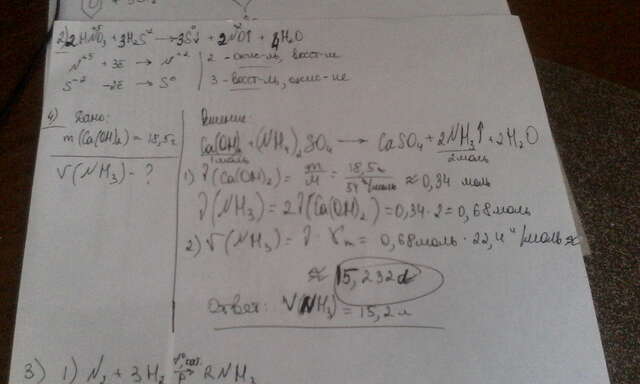 2) 2HNO₃ + 3H₂S⁻² → 3S⁰↓ + 2NO↑ + 4H₂O
N⁺⁵ + 3ē → N⁺² | 2 - окис-ль, восст-ие
S⁻² - 2ē → S⁰ | 3 - восст-ль, окис-ие
4) Дано:
m(Ca(OH)₂) = 18,5г
V(NH₃) - ?
Решение:
Ca(OH)₂ + (NH₄)₂SO₄ → CaSO₄ + 2NH₃↑ + 2H₂O
1моль 2моль
1) ν(Ca(OH)₂) = m/M = 18,5г / 54г/моль ≈ 0,34 моль
ν(NH₃) = 2ν(Ca(OH)₂) = 0,34 · 2 = 0,68моль
2) V(NH₃) = ν · Vm = 0,68моль · 22,4 л/моль ≈
≈ 15,232л
Ответ: V(NH₃) = 15,2л
3) 1) N₂ + 3H₂ ⇄ 2NH₃